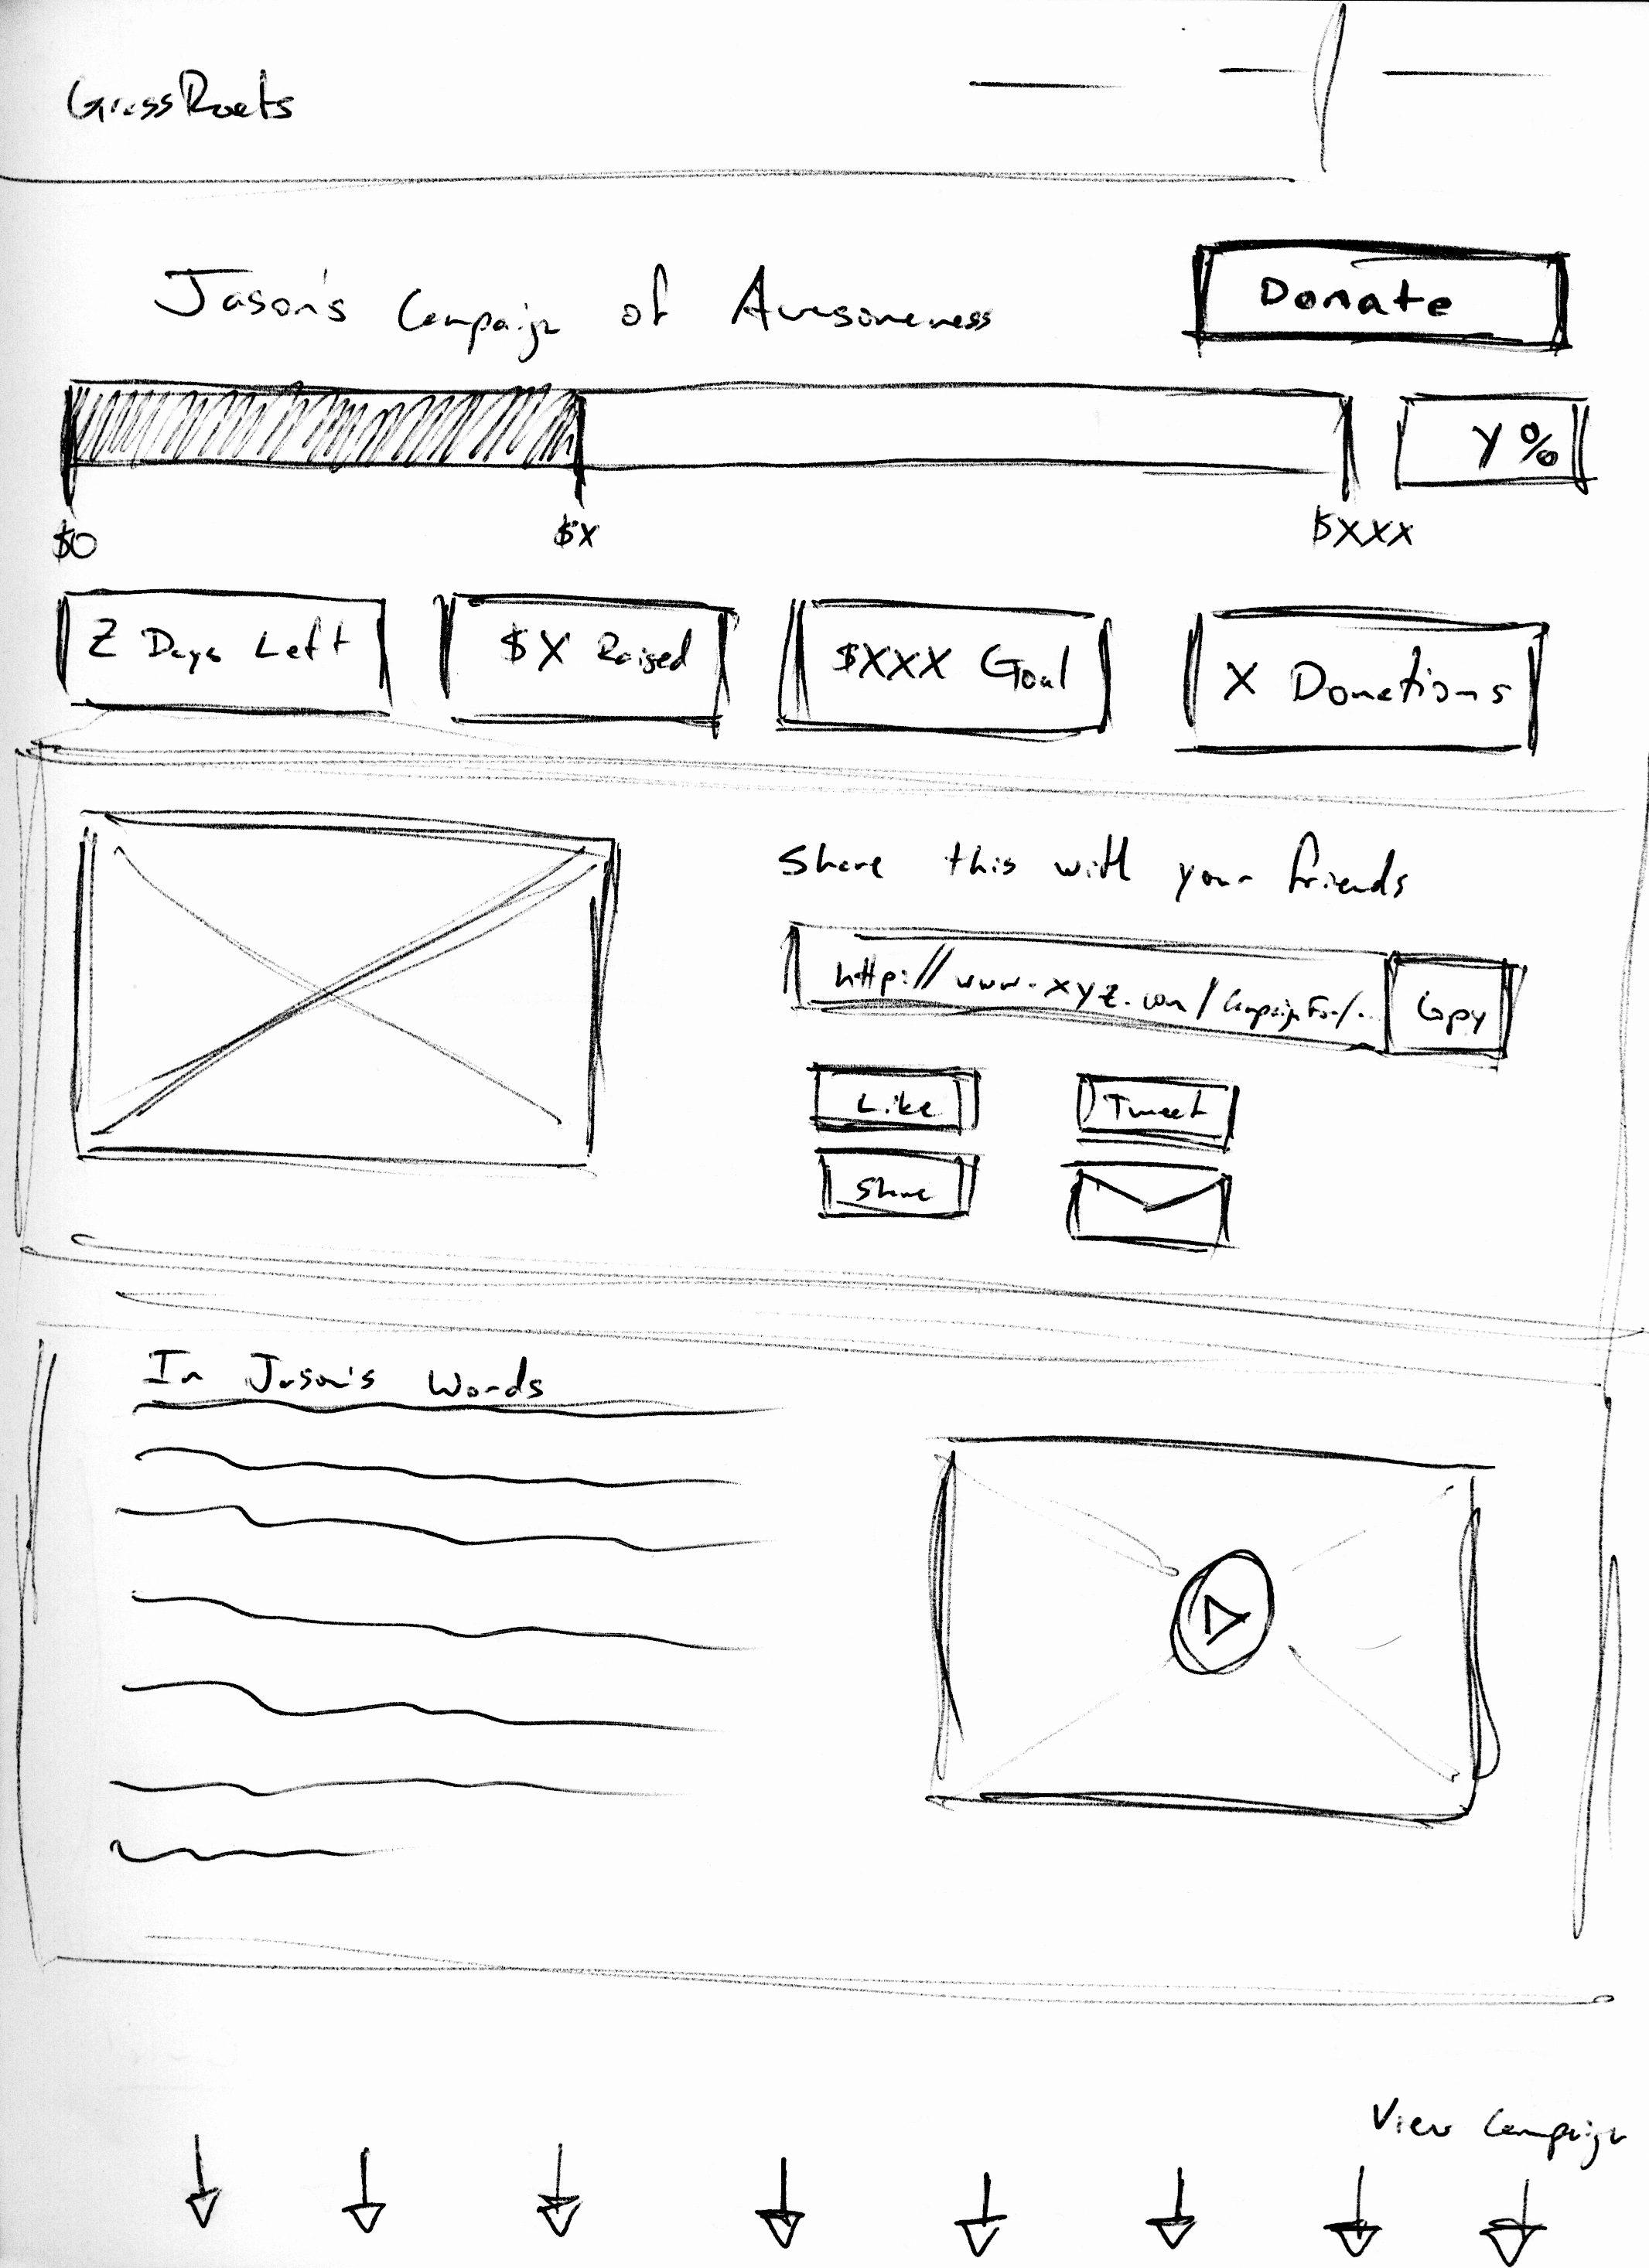 GrassRoots
Jason's Campaign of Awesomeness
Donate
Y %
$0 $X $XXX
Z Days Left $X Raised $XXX Goal X Donations
Share this with your friends
http://www.xyz.com/CampaignFor/... Copy
Like Tweet
Share
In Jason's Words
View Campaign